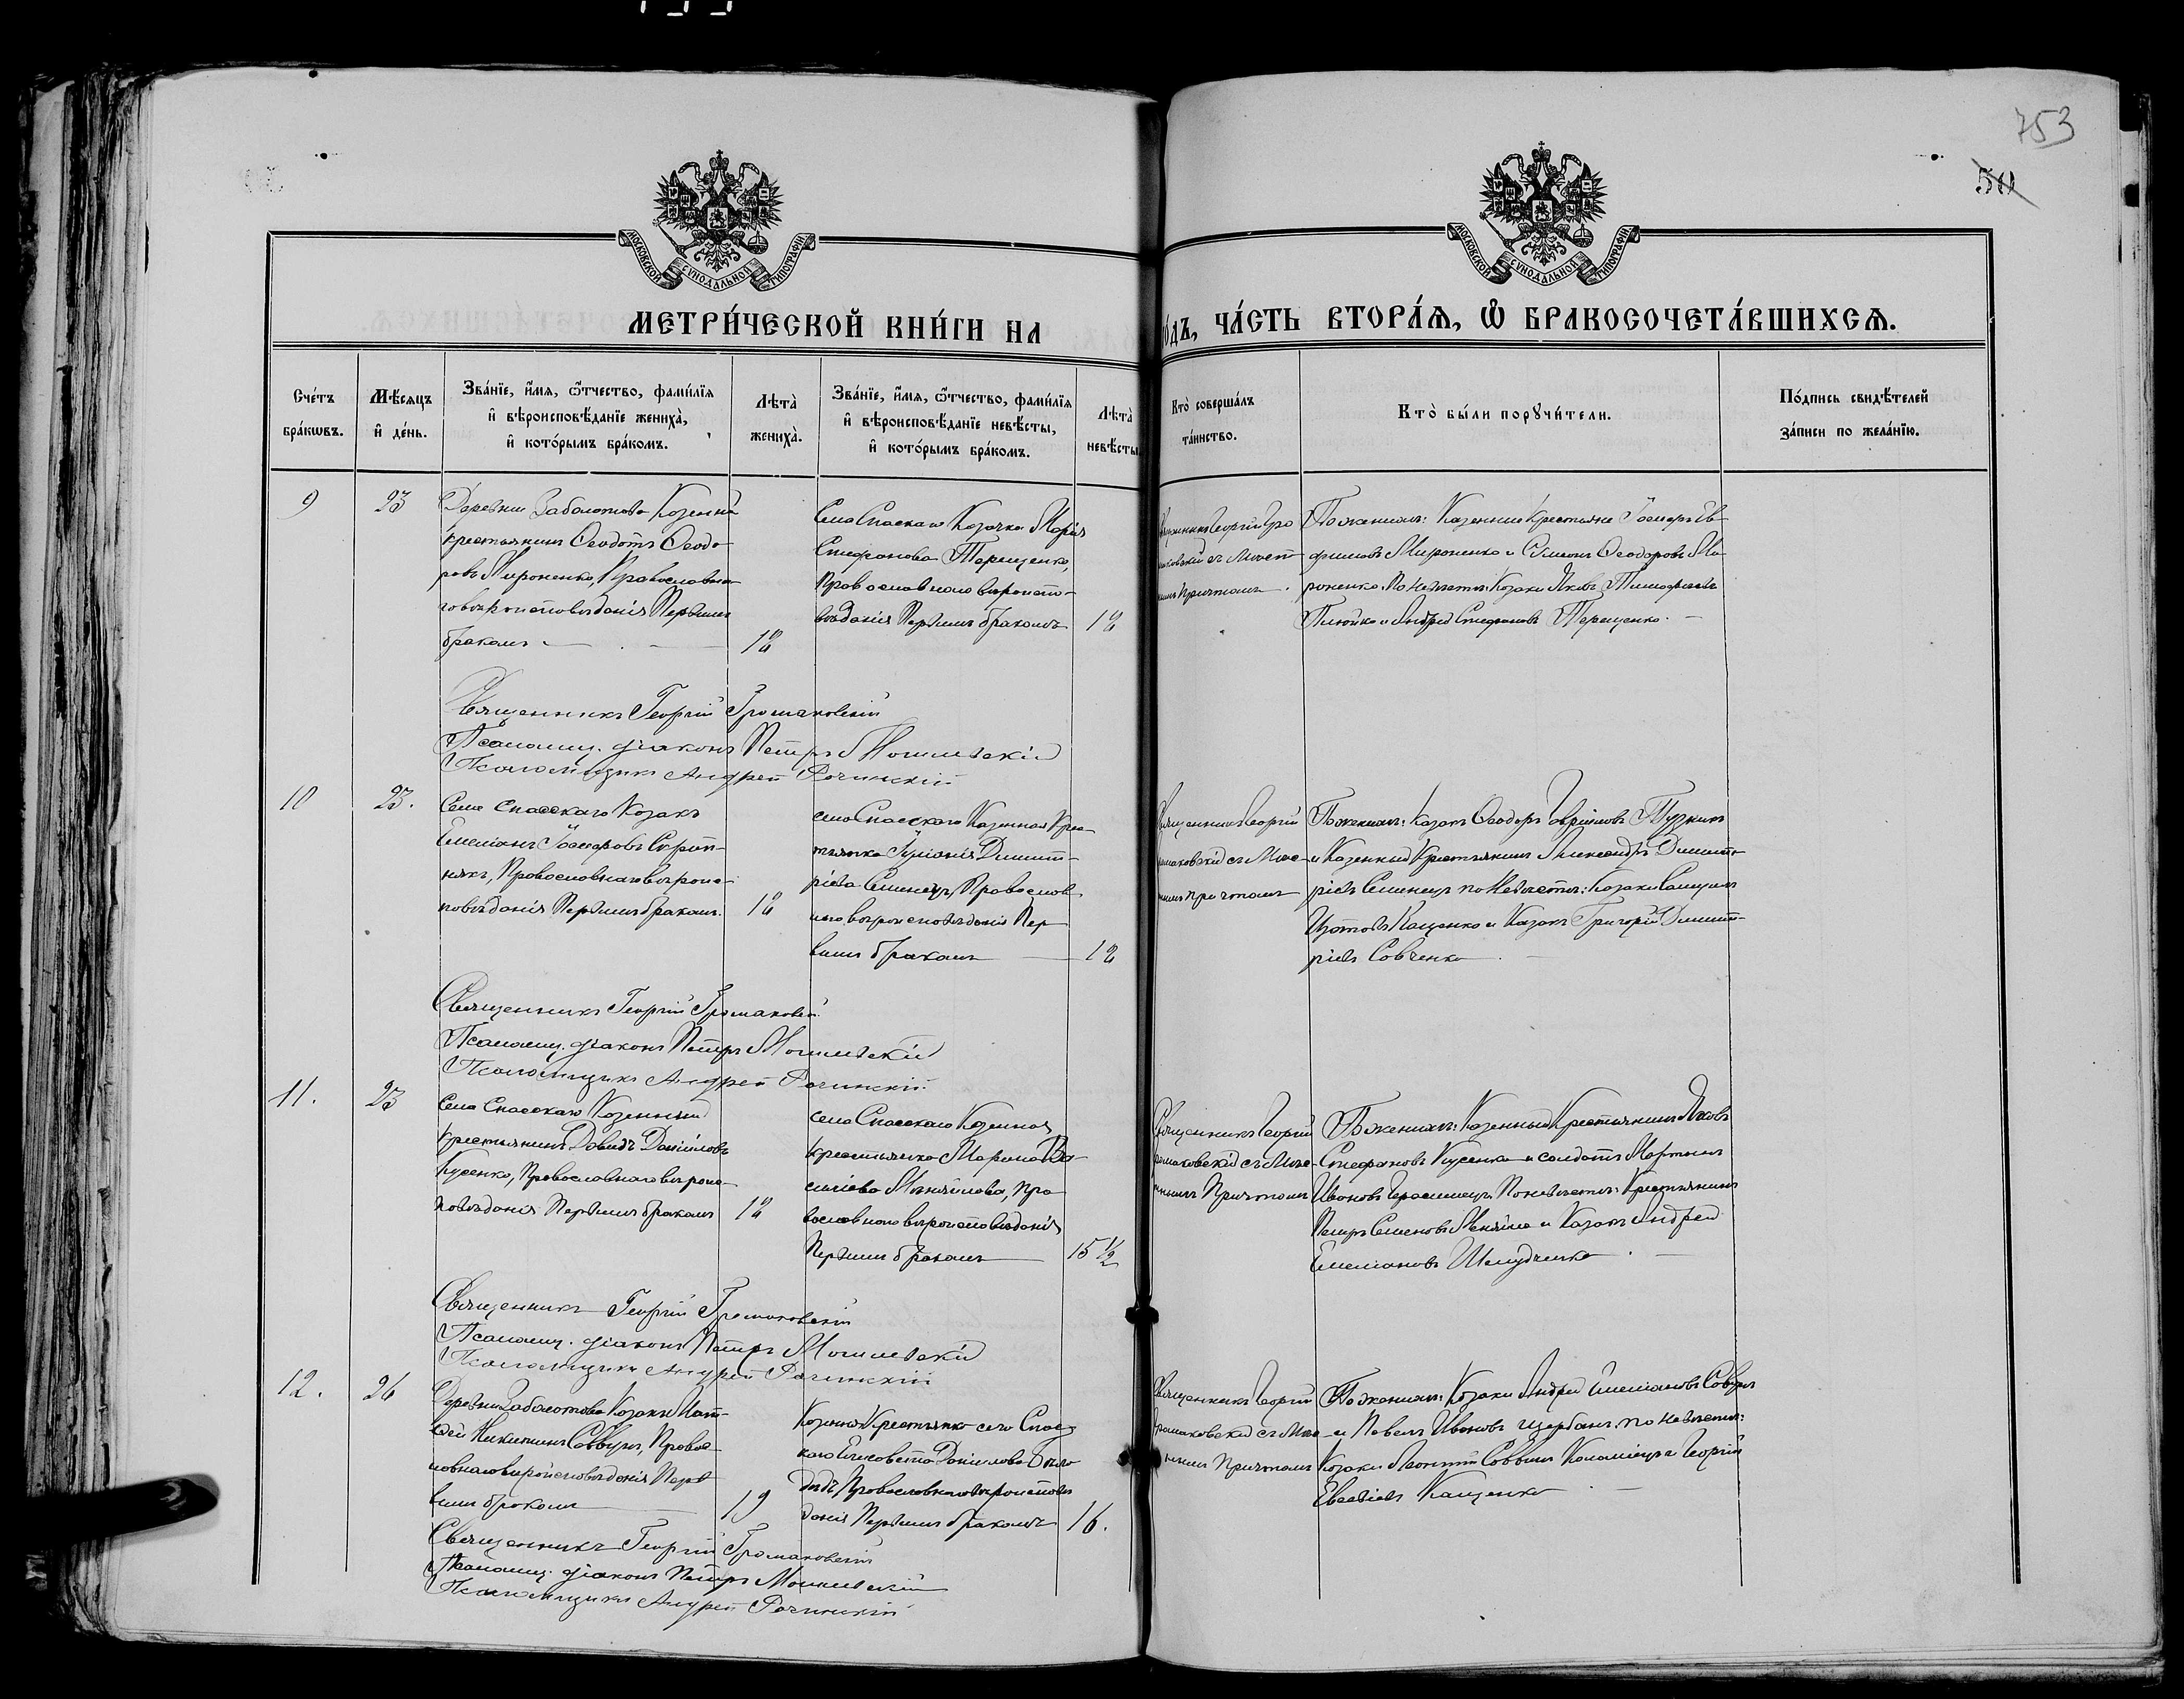 753
МОСКОВСКОЙ СѴНОДАЛЬНОЙ ТИПОГРАФІИ
МОСКОВСКОЙ СѴНОДАЛЬНОЙ ТИПОГРАФІИ
МЕТРИ́ЧЕСКОЙ КНИ́ГИ НА
ГО́ДЪ, ЧА́СТЬ ВТОРА́Я, Ѽ БРАКОСОЧЕТА́ВШИХСЯ.
Сче́тъ бра́кѡвъ.
Мѣ́сяцъ и҆ де́нь.
Зва́нїе, и҆́мя, ѻ҆́тчество, фами́лїя
и҆ вѣроисповѣ́данїе жениха̀,
и҆ кото́рымъ бра́комъ.
Лѣта̀ жениха̀.
Зва́нїе, и҆́мя, ѻ҆́тчество, фами́лїя
и҆ вѣроисповѣ́данїе невѣ́сты,
и҆ кото́рымъ бра́комъ.
Лѣта̀ невѣ́сты
Кто̀ соверша́лъ та́инство.
Кто̀ бы́ли порꙋчи́тели.
По́дпись свидѣ́телей за́писи по жела́нїю.
9
23
Деревни Заболотова Козенный
крестьянинъ Ѳеодотъ Ѳеодо-
ровъ Мироненко, Православна-
го вѣроисповѣданія Первымъ
бракомъ
18
Села Спаскаго Козачка Марія
Стефанова Терещенко,
Православнаго вѣроиспо-
вѣданія Первымъ бракомъ
18
Священникъ Георгій Гро
маковскій съ Мѣст
нымъ Причтомъ
По женихѣ: Казенные Крестьяне Іосифъ Ев-
фимовъ Мироненко и Симеонъ Ѳеодоровъ Ми-
роненко. По Невѣстѣ: Козаки Яковъ Тимофѣевъ
и Андрей Стефановъ Терещенко.
Священникъ Георгій Громаковскій
Псаломщ. діаконъ Петръ Могилевскій
Псаломщикъ Андрей Рачинскій
10
23.
Села Спасскаго Козакъ
Емеліанъ Іосифовъ Скрип-
никъ, Православнаго вѣроис-
повѣданія Первымъ бракомъ.
18
села Спасскаго Казенная Крес-
тьянка Іуліанія Димит-
ріева Семенецъ, Православ
наго вѣроисповѣданія Пер
вымъ бракомъ
18
Священникъ Георгій
Громаковскій съ Мѣс-
тнымъ Причтомъ
По женихѣ: Козакъ Ѳеодоръ Гавриловъ
и Казенный Крестьянинъ Александръ Димит-
ріевъ Семенецъ по Невѣстѣ: Козаки
Кащенко и Козакъ Григорій Димит-
ріевъ Совченко
Священникъ Георгій Громаковскій
Псаломщ. діаконъ Петръ Могилевскій
Псаломщикъ Андрей Рачинскій
11.
23
Села Спасскаго Козенный
крестьянинъ Давидъ Даніиловъ
Кусенко, Православнаго вѣроис-
повѣданія Первымъ бракомъ
18
села Спасскаго Казенная
крестьянка Марина Ва-
силіева, Пра
вославнаго вѣроисповѣданія
Первымъ бракомъ
15 ½
Священникъ Георгій
Громаковскій съ Мѣс-
тнымъ Причтомъ
По женихѣ: Казенный Крестьянинъ Яковъ
Стефановъ Кусенко и солдатъ Мартынъ
Ивановъ Герасименко По невѣстѣ: Крестьянинъ
Петръ Семеновъ и Козакъ Андрей
Емеліановъ Шелудченко
Священникъ Георгій Громаковскій
Псаломщ. діаконъ Петръ Могилевскій
Псаломщикъ Андрей Рачинскій
12.
26
Деревни Заболотова Козакъ Мат-
ѳей Никитинъ Саввунъ, Правос-
лавнаго вѣроисповѣданія Пер
вымъ бракомъ
19
Козенная Крестьянка села Спас
каго Елисавета Данилова
Православнаго вѣроисповѣ
данія Первымъ бракомъ
16.
Священникъ Георгій
Громаковскій съ Мѣс
тнымъ Причтомъ
По женихѣ: Козаки Андрей Емеліановъ Савунъ
и Павелъ Ивановъ Щербань по невѣстѣ:
Козаки Леонтій Саввинъ Коломіецъ и Георгій
Евсевіевъ Кащенко
Священникъ Георгій Громаковскій
Псаломщ. діаконъ Петръ Могилевскій
Псаломщикъ Андрей Рачинскій